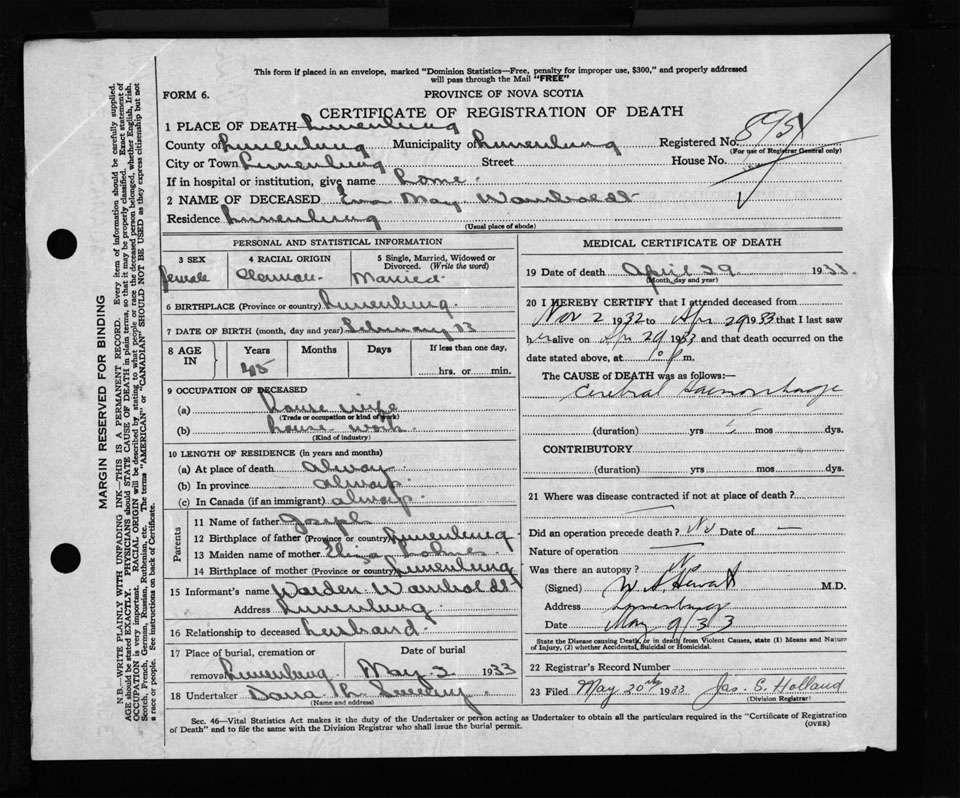 This form if placed in an envelope, marked "Dominion Statistics—Free, penalty for improper use, $300," and properly addressed
will pass through the Mail "FREE"
FORM 6. PROVINCE OF NOVA SCOTIA
CERTIFICATE OF REGISTRATION OF DEATH
1 PLACE OF DEATH Lunenburg
County of Lunenburg Municipality of Lunenburg Registered No.
(For use of Registrar General only)
City or Town Lunenburg Street House No.
If in hospital or institution, give name home
2 NAME OF DECEASED Eva May Wamboldt
Residence Lunenburg
(Usual place of abode)
PERSONAL AND STATISTICAL INFORMATION
3 SEX 4 RACIAL ORIGIN 5 Single, Married, Widowed or
Divorced. (Write the word)
female German Married
6 BIRTHPLACE (Province or country) Lunenburg
7 DATE OF BIRTH (month, day and year) February 13
8 AGE IN Years Months Days If less than one day,
45 hrs. or min.
9 OCCUPATION OF DECEASED
(a) house wife
(Trade or occupation or kind of work)
(b) house work
(Kind of industry)
10 LENGTH OF RESIDENCE (in years and months)
(a) At place of death Always
(b) In province always
(c) In Canada (if an immigrant) always
Parents
11 Name of father Joseph
12 Birthplace of father (Province or country) Lunenburg
13 Maiden name of mother Eliza
14 Birthplace of mother (Province or country) Lunenburg
15 Informant's name Warden Wamboldt
Address Lunenburg
16 Relationship to deceased husband
17 Place of burial, cremation or Date of burial
removal Lunenburg May 2 1933
18 Undertaker
(Name and address)
MEDICAL CERTIFICATE OF DEATH
19 Date of death April 29 1933
(Month, day and year)
20 I HEREBY CERTIFY that I attended deceased from
Nov 2 1932 to Apr 29 1933 that I last saw
her alive on Apr 29 1933 and that death occurred on the
date stated above, at 10 p m.
The CAUSE of DEATH was as follows:
Cerebral Haemorrhage
(duration) yrs mos dys.
CONTRIBUTORY
(duration) yrs mos dys.
21 Where was disease contracted if not at place of death?
Did an operation precede death? No Date of —
Nature of operation —
Was there an autopsy? No
(Signed) W. A. Hewat M.D.
Address Lunenburg
Date May 9/33
State the Disease causing Death, or in death from Violent Causes, state (1) Means and Nature
of Injury, (2) whether Accidental, Suicidal or Homicidal.
22 Registrar's Record Number
23 Filed May 20th 1933 Jas. E. Holland
(Division Registrar)
Sec. 46—Vital Statistics Act makes it the duty of the Undertaker or person acting as Undertaker to obtain all the particulars required in the "Certificate of Registration
of Death" and to file the same with the Division Registrar who shall issue the burial permit. (OVER)
MARGIN RESERVED FOR BINDING
N.B.—WRITE PLAINLY WITH UNFADING INK—THIS IS A PERMANENT RECORD. Every item of information should be carefully supplied.
AGE should be stated EXACTLY. PHYSICIANS should STATE CAUSE OF DEATH in plain terms, so that it may be properly classified. Exact statement of
OCCUPATION is very important. RACIAL ORIGIN will be described by stating to what people or race the deceased person belonged, whether English, Irish,
Scotch, French, German, Russian, Ruthenian, etc. The terms "AMERICAN" or "CANADIAN" SHOULD NOT BE USED as they express citizenship but not
a race or people. See instructions on back of Certificate.